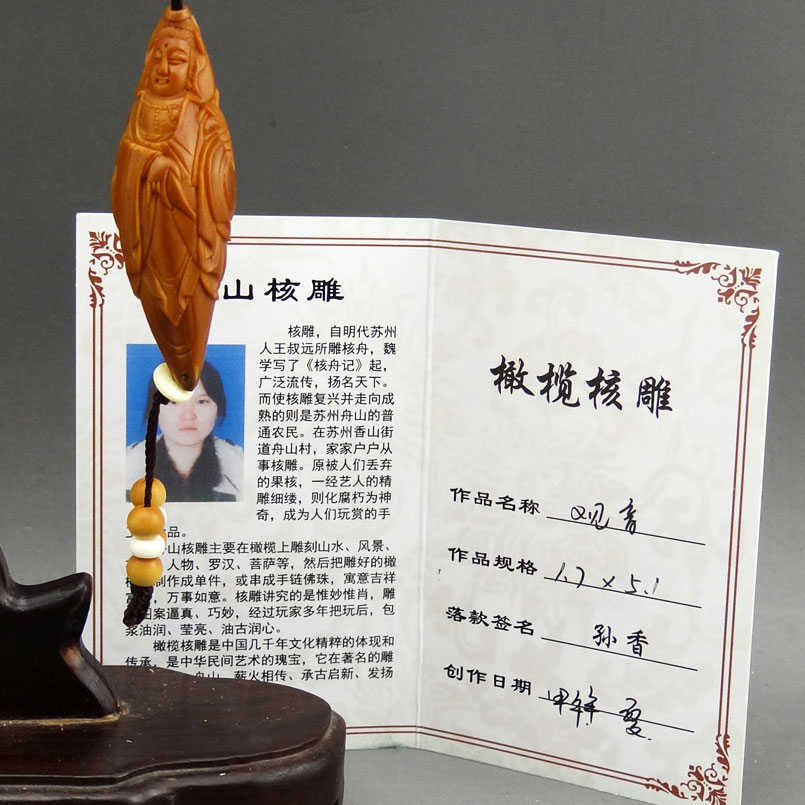 山核雕
核雕，自明代苏州
人王叔远所雕核舟，魏
学写了《核舟记》起，
广泛流传，扬名天下。
而使核雕复兴并走向成
熟的则是苏州舟山的普
通农民。在苏州香山街
道舟山村，家家户户从
事核雕。原被人们丢弃
的果核，一经艺人的精
雕细缕，则化腐朽为神
奇，成为人们玩赏的手
品。
山核雕主要在橄榄上雕刻山水、风景、
人物、罗汉、菩萨等，然后把雕好的橄
制作成单件，或串成手链佛珠，寓意吉祥
，万事如意。核雕讲究的是惟妙惟肖，雕
图案逼真、巧妙，经过玩家多年把玩后，包
浆油润、莹亮、油古润心。
橄榄核雕是中国几千年文化精粹的体现和
传承，是中华民间艺术的瑰宝，它在著名的雕
舟山，薪火相传、承古启新、发扬
橄榄核雕
作品名称 观音
作品规格 1.7×5.1
落款签名 孙香
创作日期 夏